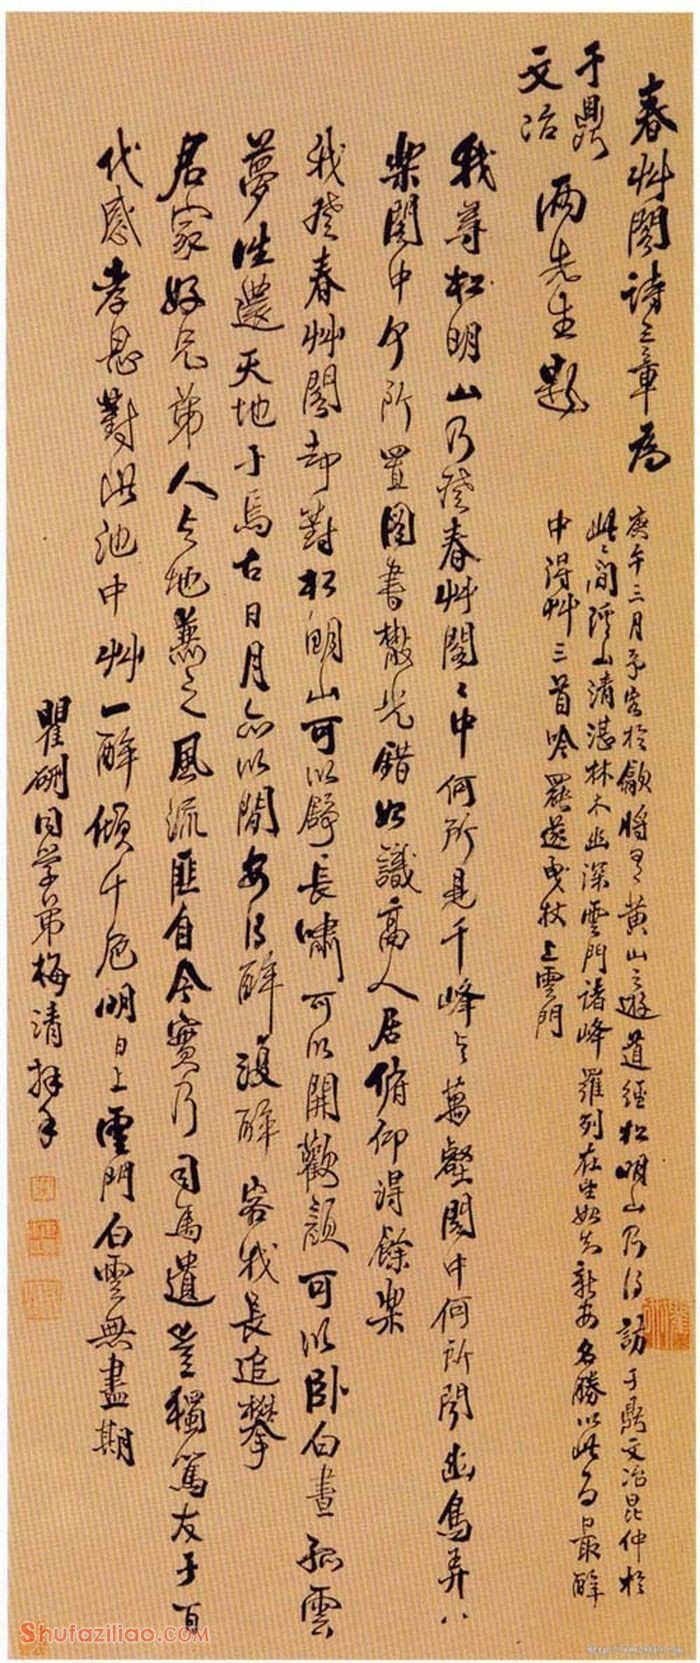 春艸閣詩三章為
于鼎
文冶
兩先生題
庚午三月予客於歙將有黃山之遊道經松明山乃得訪于鼎文冶昆仲於
此間溪山清湛林木幽深雲門諸峰羅列在坐始知新安名勝以此為最醉
中得艸三首吟罷遂曳杖上雲門
我尋松明山乃登春艸閣〻中何所見千峰與萬壑閣中何所聞幽鳥弄八
樂閣中何所置圖書散光錯始識高人居俯仰得餘樂
我登春艸閣却對松明山可以舒長嘯可以開歡顏可以臥白晝孤雲
夢往還天地于焉古日月亦以閒安得醉復醉容我長追攀
君家好兄弟人與地兼之風流匪自今實乃司馬遺豈獨篤友于百
代感孝思對此池中艸一醉傾千巵明日上雲門白雲無盡期
瞿硎同學弟梅清拜手
Shufaziliao.com